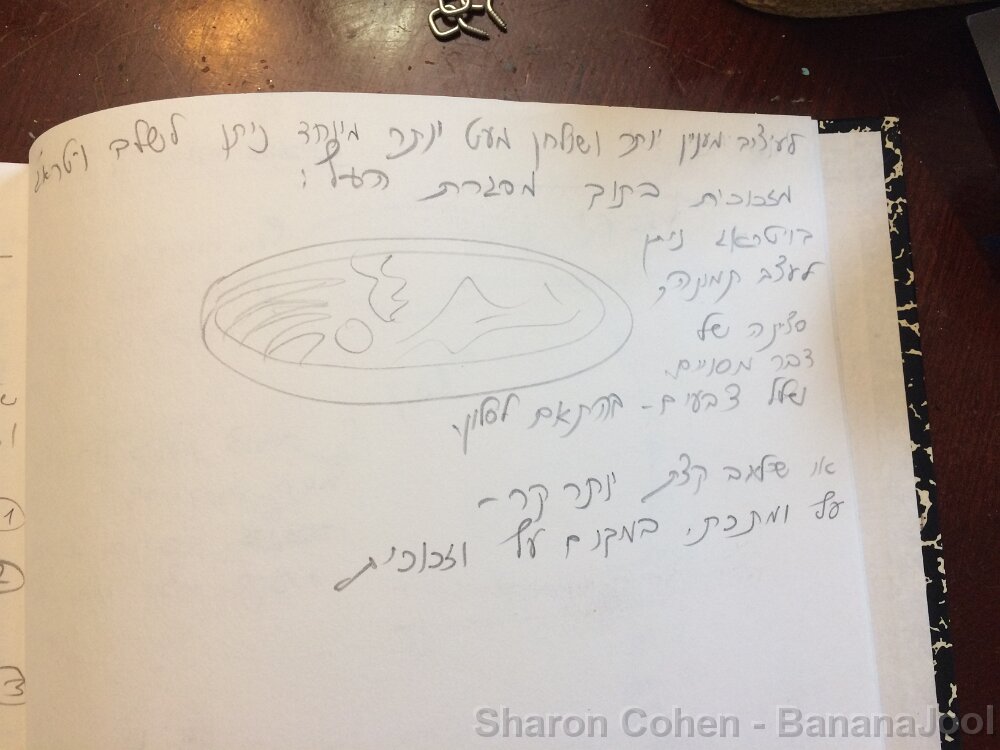 לעיצוב מעניין יותר ושולחן מעט יותר מיוחד ניתן לשלב ויטראג'
מזכוכית בתוך מסגרת העץ:
בויטראג' ניתן
לעצב תמונה,
סצינה של
דבר מסויים.
שלל צבעים - בהתאם לסלון.
או שילוב קצת יותר קר -
עץ ומתכת, במקום עץ וזכוכית
1
2
3
Sharon Cohen - BananaJool